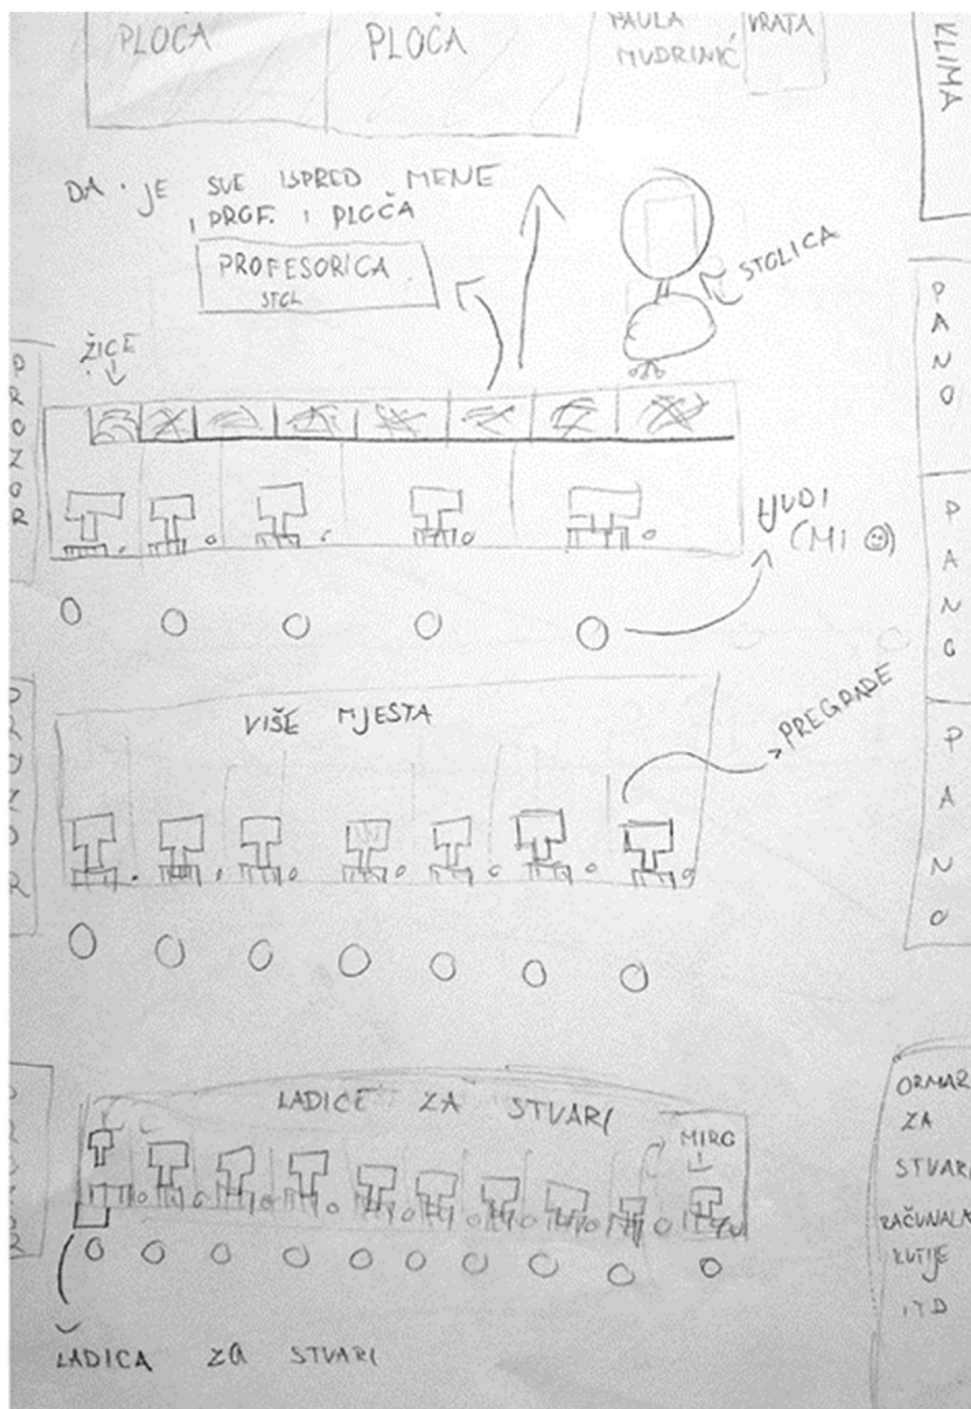 PLOČA
PLOČA
PAULA
MUDRINIĆ
VRATA
KLIMA
DA JE SVE ISPRED MENE
I PROF. I PLOČA
PROFESORICA
STOL
STOLICA
ŽICE
PROZOR
PANO
LJUDI
(MI ☺)
PANO
VIŠE MJESTA
PREGRADE
PROZOR
PANO
LADICE ZA STVARI
MIRO
ORMAR
ZA
STVARI
RAČUNALA
KUTIJE
ITD
LADICA ZA STVARI